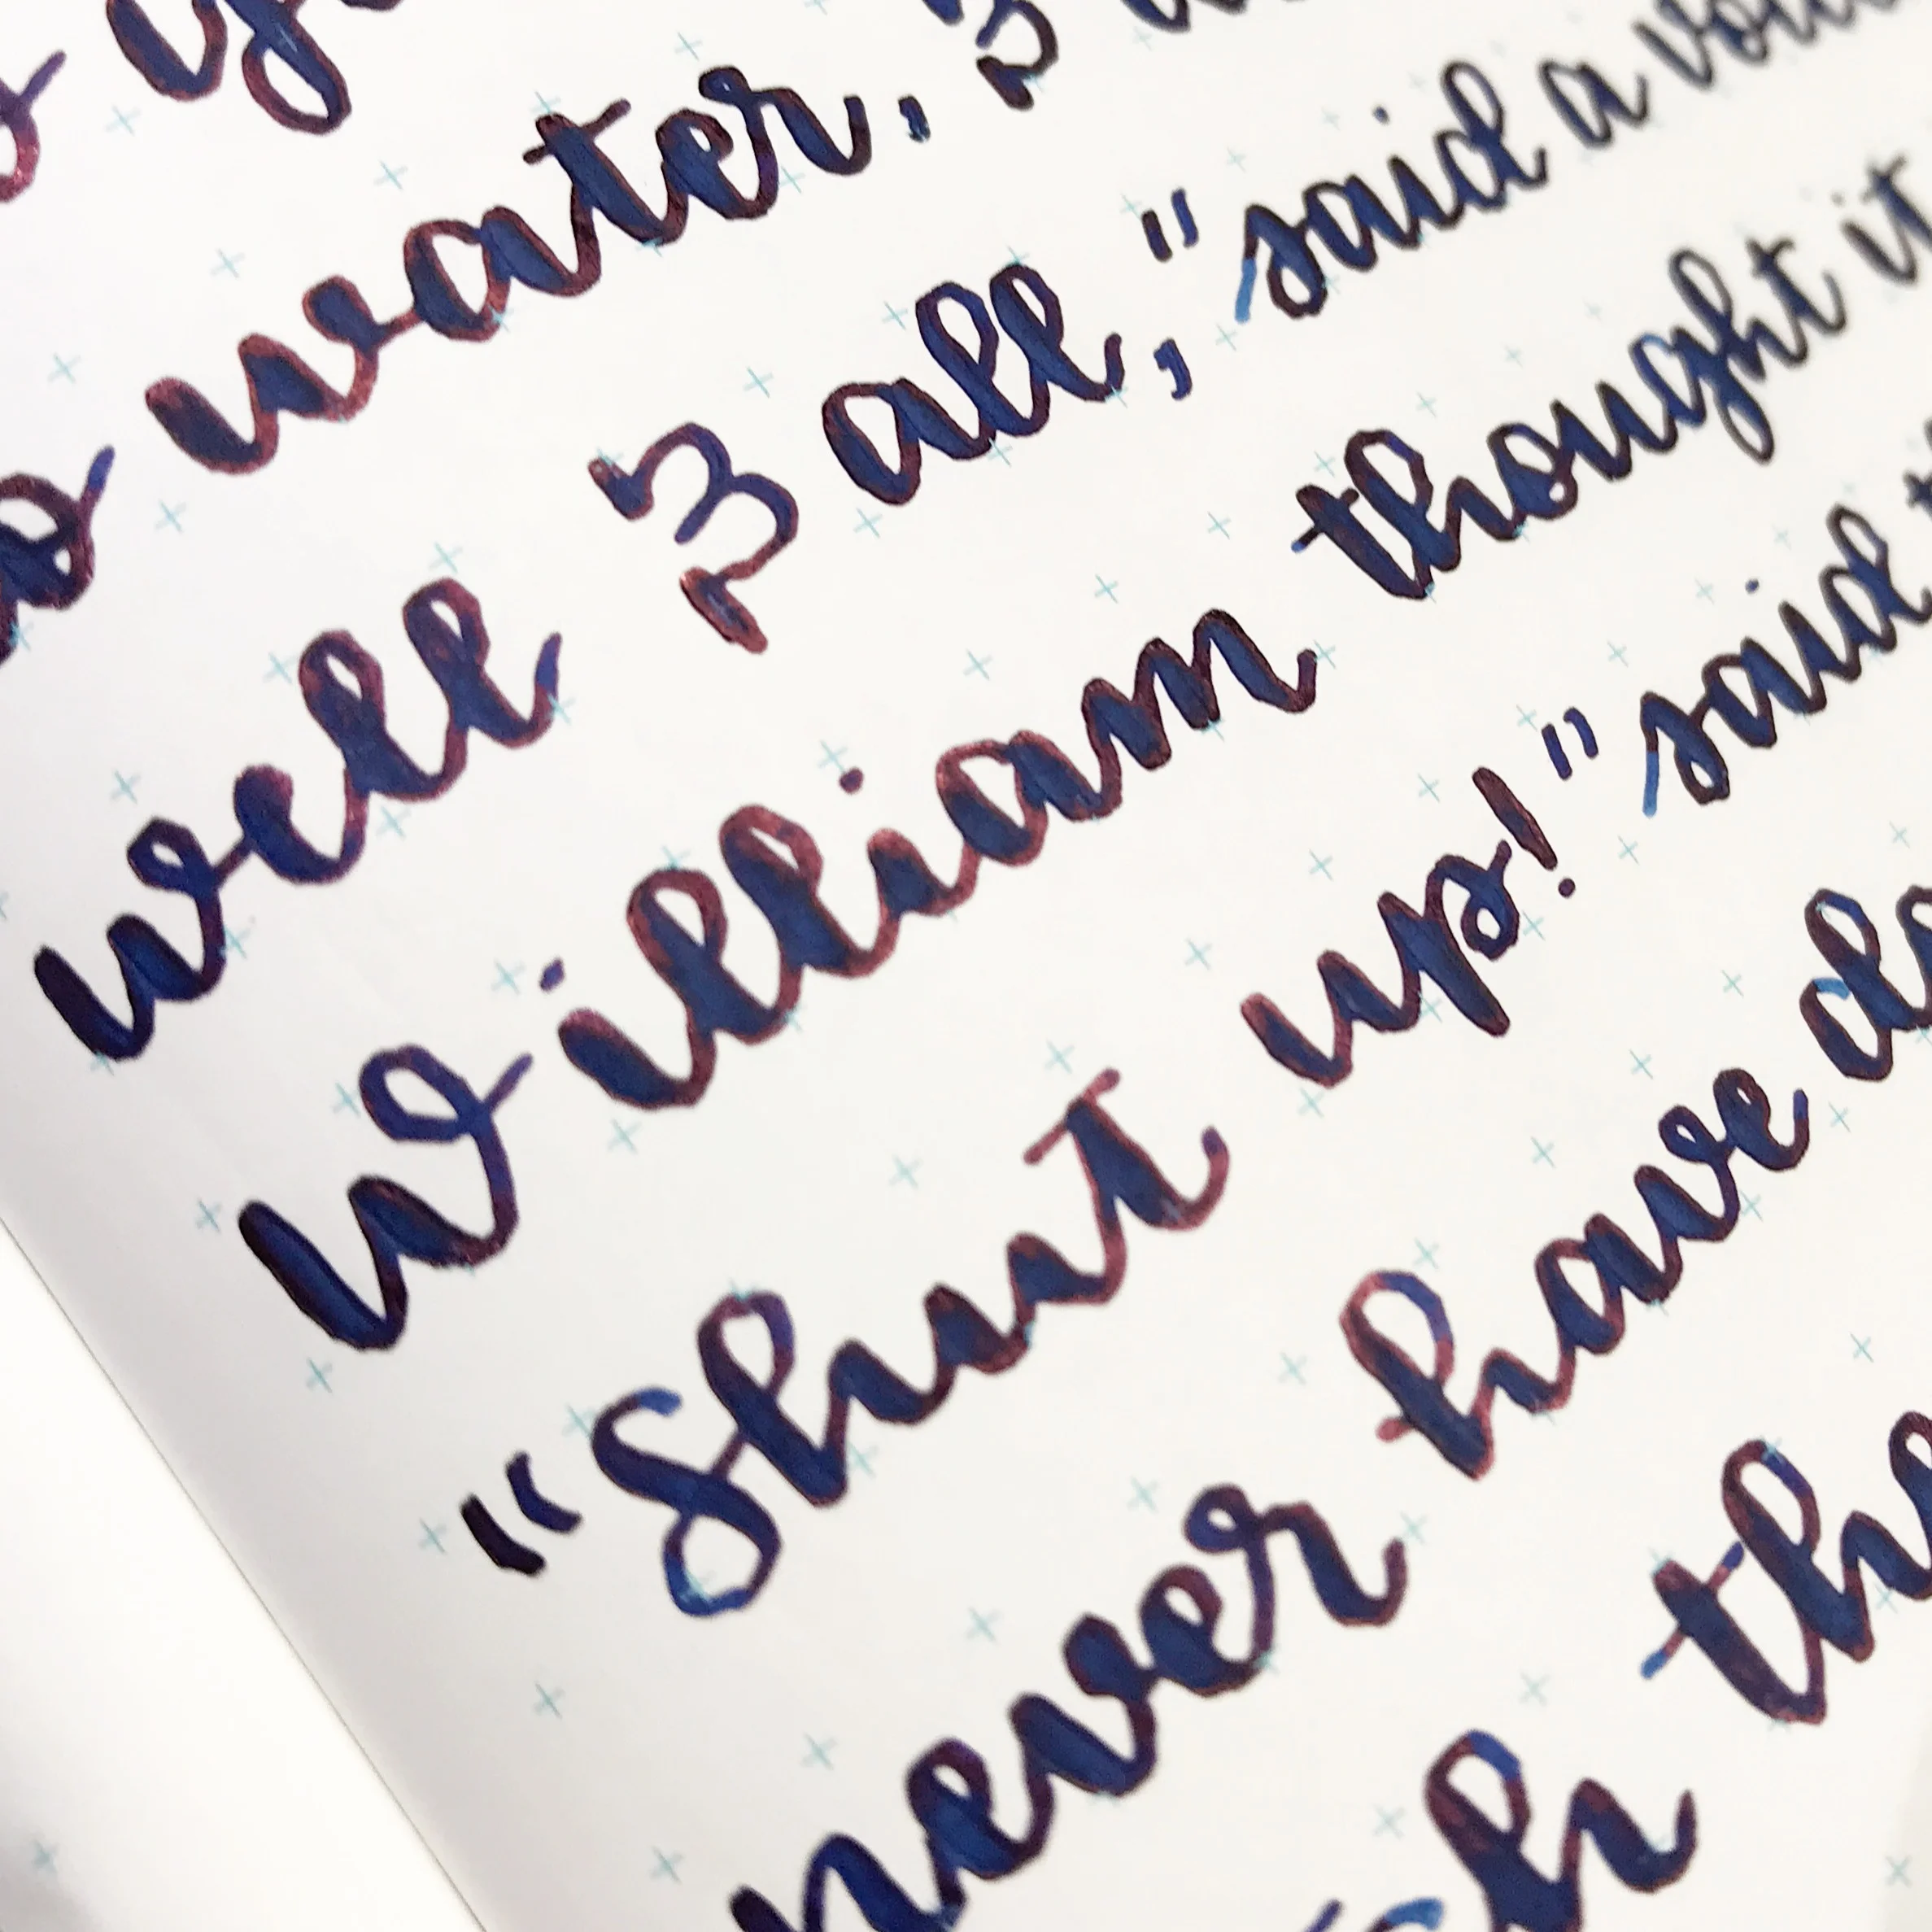 water, &
well & all," said a
William thought it
"Shut up!" said
never have